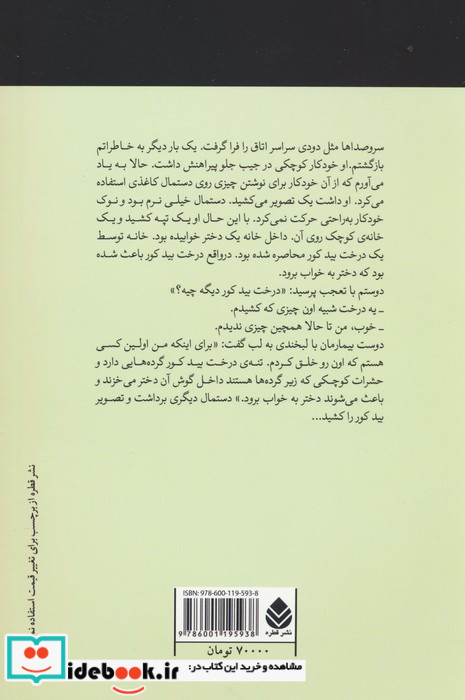 سروصداها مثل دودی سراسر اتاق را فرا گرفت. یک بار دیگر به خاطراتم
بازگشتم. او خودکار کوچکی در جیب جلو پیراهنش داشت. حالا به یاد
می‌آورم که از آن خودکار برای نوشتن چیزی روی دستمال کاغذی استفاده
می‌کرد. او داشت یک تصویر می‌کشید. دستمال خیلی نرم بود و نوک
خودکار به‌راحتی حرکت نمی‌کرد. با این حال او یک تپه کشید و یک
خانه‌ی کوچک روی آن. داخل خانه یک دختر خوابیده بود. خانه توسط
یک درخت بید کور محاصره شده بود. درواقع درخت بید کور باعث شده
بود که دختر به خواب برود.
دوستم با تعجب پرسید: «درخت بید کور دیگه چیه؟»
ـ یه درخت شبیه اون چیزی که کشیدم.
ـ خوب، من تا حالا همچین چیزی ندیدم.
دوست بیمارمان با لبخندی به لب گفت: «برای اینکه من اولین کسی
هستم که اون رو خلق کردم. تنه‌ی درخت بید کور گرده‌هایی دارد و
حشرات کوچکی که زیر گرده‌ها هستند داخل گوش آن دختر می‌خزند و
باعث می‌شوند دختر به خواب برود.» دستمال دیگری برداشت و تصویر
بید کور را کشید...
نشر قطره از برچسب برای تغییر قیمت استفاده نم
ISBN: 978-600-119-593-8
9 786001 195938
نشر قطره
۷۰۰۰۰ تومان
idebook.ir
مشاهده و خرید این کتاب در: